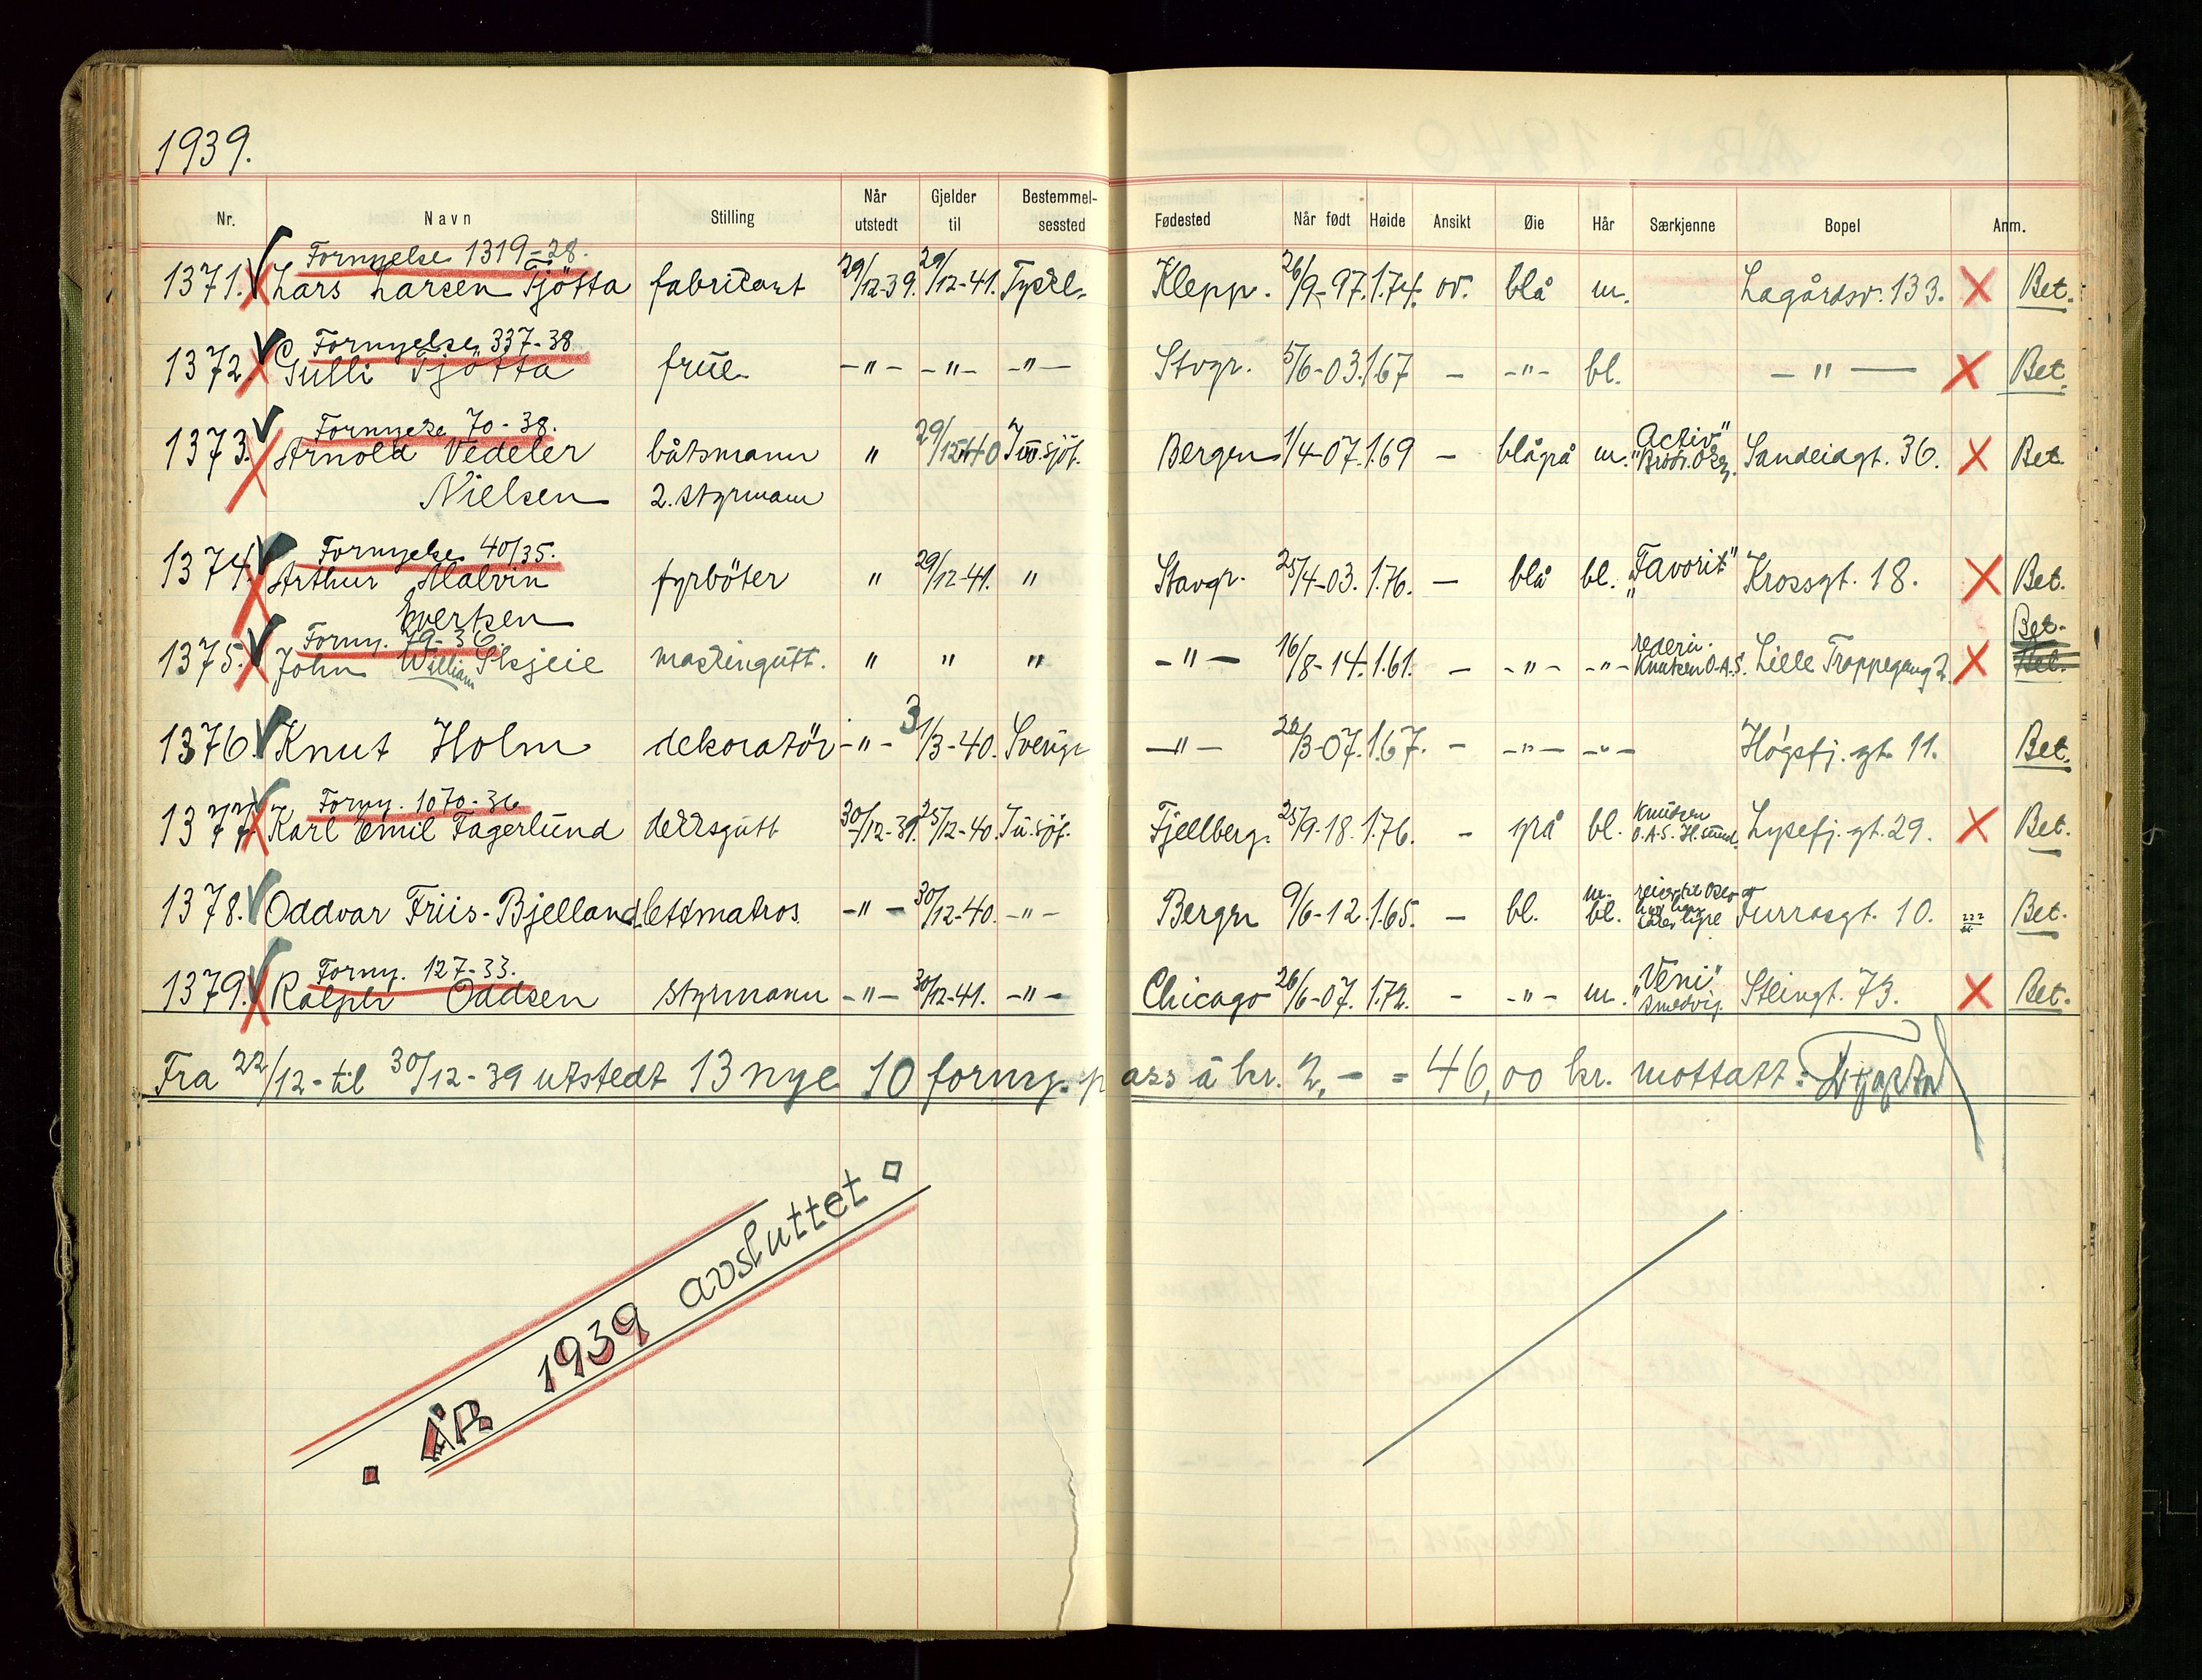 1939.
Nr. Navn Stilling Når utstedt Gjelder til Bestemmelsessted Fødested Når født Høide Ansikt Øie Hår Særkjenne Bopel Anm.
Fornyelse 1319-28.
1371. Lars Larsen Tjötta fabrikant 29/12-39. 29/12-41. Tyskl. Klepp. 26/9-97. 1.74. ov. blå m. Lagårdsv. 133. X Bet.
Fornyelse 337-38
1372. Gulli Tjötta frue -"- -"- -"- Stvgr. 5/6-03. 1.67 - -"- bl. -"- X Bet.
Fornyelse 70-38.
1373. Arnold Vedeler båtsmann " 29/12-40 In.sjöf. Bergen 1/4-07. 1.69 - blågrå m. "Activ" Sandeidgt. 36. X Bet.
Nielsen 2. styrmann
Fornyelse 40/35.
1374. Arthur Malvin fyrböter " 29/12-41. " Stavgr. 25/4-03. 1.76. - blå bl. "Favorit" Krossgt. 18. X Bet.
Evertsen
Forny. 79-36. Bet.
1375. John William Skjeie maskingutt. " " " -"- 16/8-14. 1.61. - -"- -"- rederi. Knutsen O.A.S. Lille Troppegang 2. X Bet.
1376. Knut Holm dekoratör -"- 31/3-40. Sverige -"- 22/3-07. 1.67. - -"- -"- Högsfj. gt. 11. Bet.
Forny. 1070-36
1377. Karl Emil Fagerlund dekksgutt 30/12-39. 25/12-40. In.sjöf. Fjellberg. 25/9-18. 1.76. - grå bl. Knutsen O.A.S. H.sund. Lysefj. gt. 29. X Bet.
1378. Oddvar Friis-Bjelland lettmatros -"- 30/12-40. -"- Bergen 9/6-12. 1.65. - bl. m. bl. reiser til Oslo Turrasgt. 10. Bet.
Forny. 127-33.
1379. Ralph Oddsen styrmann -"- 30/12-41. -"- Chicago 26/6-07. 1.72. - -"- m. "Veni" Smedvig. Steingt. 73. X Bet.
Fra 22/12- til 30/12-39 utstedt 13 nye 10 forny. pass à kr. 2,- = 46,00 kr. mottatt:
ÅR 1939 avsluttet